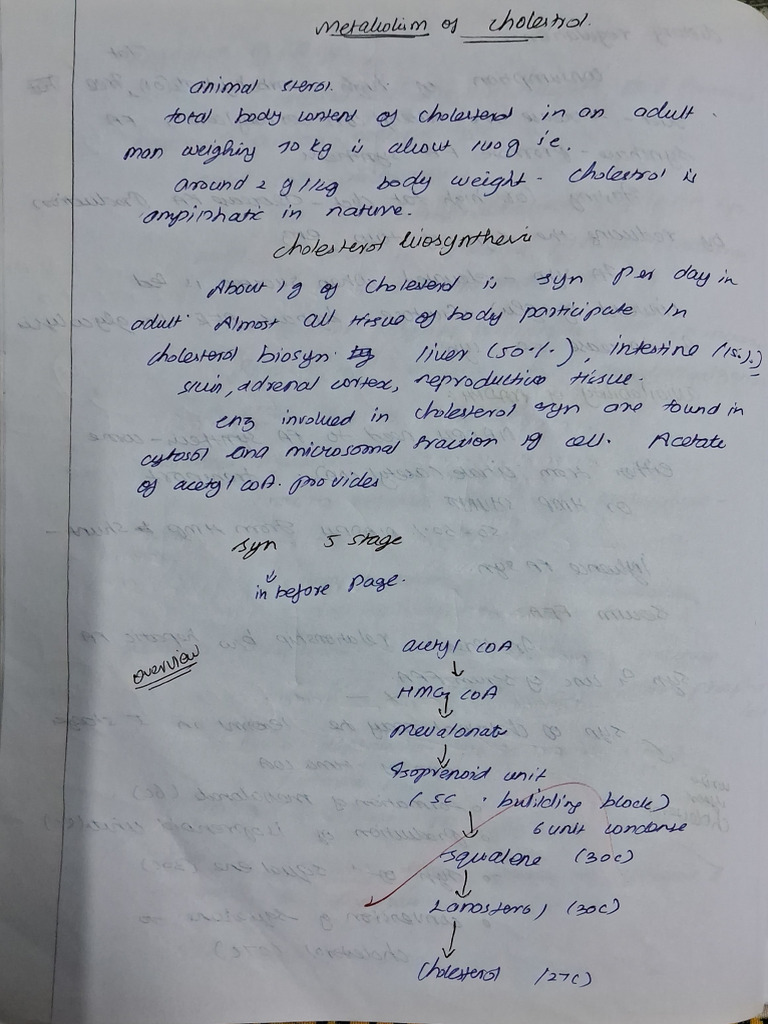 Metabolism of cholestrol.
animal sterol.
total body content of cholesterol in an adult
man weighing 70 kg is about 140 g ie.
around 2 g/kg body weight - cholestrol is
ampiphatic in nature.
cholesterol biosynthesis
About 1g of cholesterol is syn per day in
adult. Almost all tissue of body participate in
cholesterol biosyn. liver (50%), intestine (15%)
skin, adrenal cortex, reproductive tissue.
enz involved in cholesterol syn are found in
cytosol and microsomal fraction of cell. Acetate
of acetyl coA. provides
syn 5 stage
in before page.
overview
acetyl coA
↓
HMG coA
↓
Mevalonate
↓
Isoprenoid unit
(5c . building block)
↓ 6 unit condense
squalene (30c)
↓
Lanosterol (30c)
↓
cholesterol (27c)